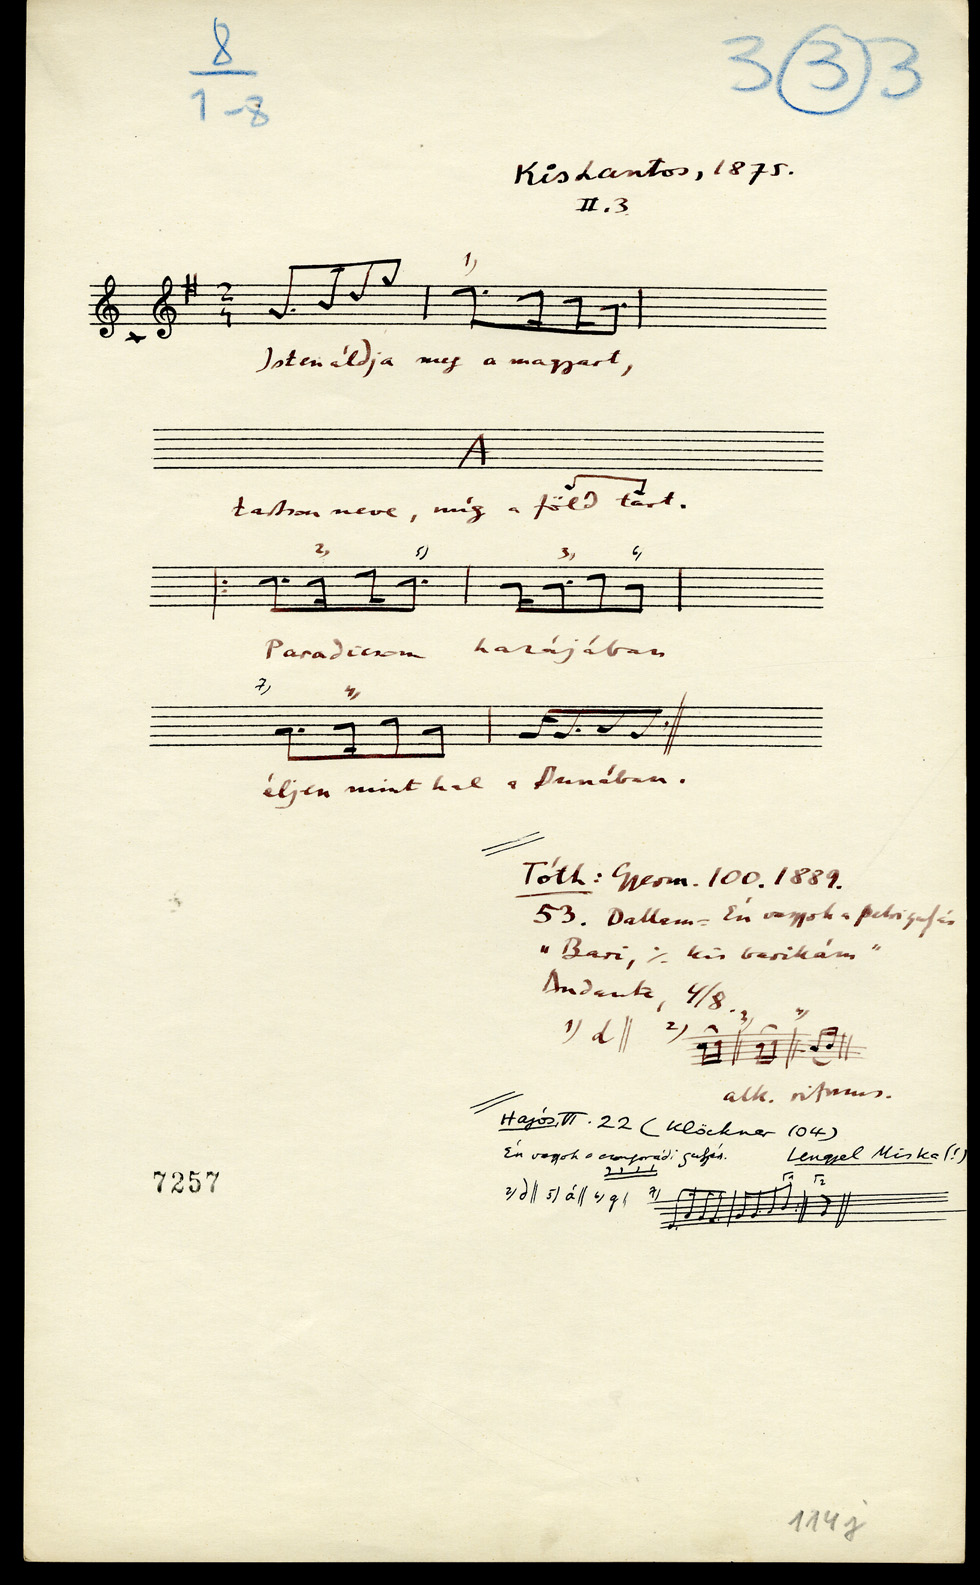 8
1-8
333
Kis Lantos, 1875.
II.3
2
4
1)
Isten áldja meg a magyart,
A
tartson neve, míg a föld tart.
2) 5) 3) 6)
Paradicsom hazájában
7) 4)
éljen mint hal a Dunában.
Tóth: Gyerm. 100. 1889.
53. Dallam = Én vagyok a petri gulyás
"Bari, ·/· kis barikám"
Andante, 4/8.
1) d || 2) 3) 4)
alk. ritmus.
Hajós, VI. 22 (Klöckner 104)
Én vagyok a csongorádi gulyás. Lengyel Miska (!)
2) d || 5) á || 6) g 7)
7257
114j